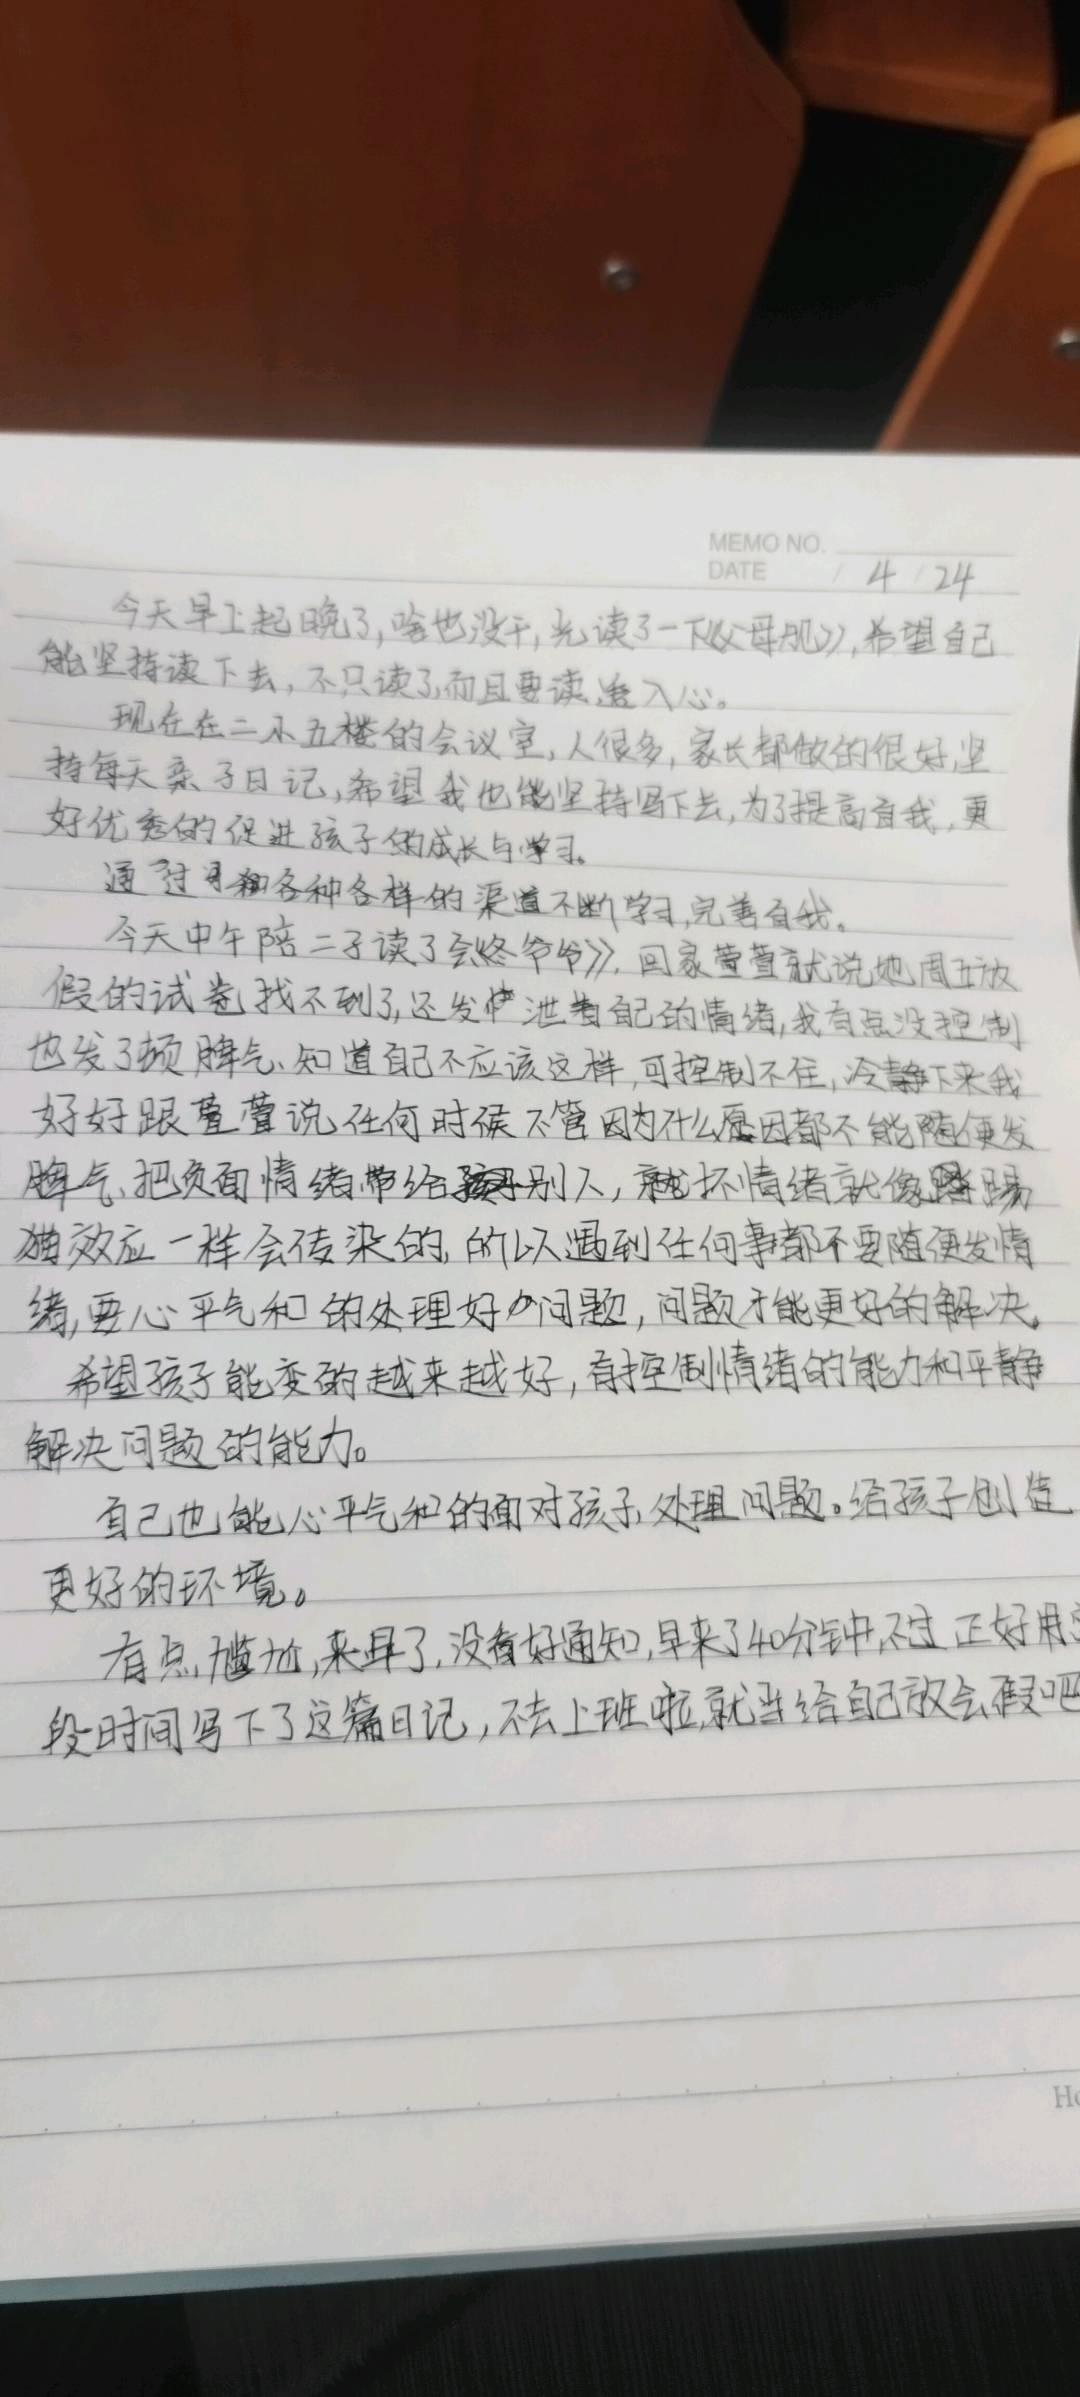 MEMO NO.
DATE / 4 / 24
今天早上起晚了,啥也没干,光读了一下《父母规》,希望自己
能坚持读下去,不只读了而且要读进入心。
现在在二小五楼的会议室,人很多,家长都做的很好,坚
持每天亲子日记,希望我也能坚持写下去,为了提高自我,更
好优秀的促进孩子的成长与学习。
通过各种各样的渠道不断学习,完善自我。
今天中午陪二子读了会《冬爷爷》,回家萱萱就说她周五放
假的试卷找不到了,还发泄着自己的情绪,我有点没控制
也发了顿脾气、知道自己不应该这样,可控制不住,冷静下来我
好好跟萱萱说任何时候不管因为什么原因都不能随便发
脾气、把负面情绪带给别人,坏情绪就像踢
猫效应一样会传染的,的以遇到任何事都不要随便发情
绪,要心平气和的处理好问题,问题才能更好的解决。
希望孩子能变的越来越好,有控制情绪的能力和平静
解决问题的能力。
自己也能心平气和的面对孩子,处理问题。给孩子创造
更好的环境。
有点尴尬,来早了,没看好通知,早来了40分钟,不过正好用这
段时间写下了这篇日记,不去上班啦,就当给自己放会假吧